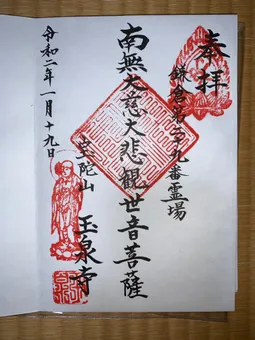 奉拝
鎌倉第二九番霊場
南無大慈大悲觀世音菩薩
陀山 玉泉寺
令和二年一月十九日